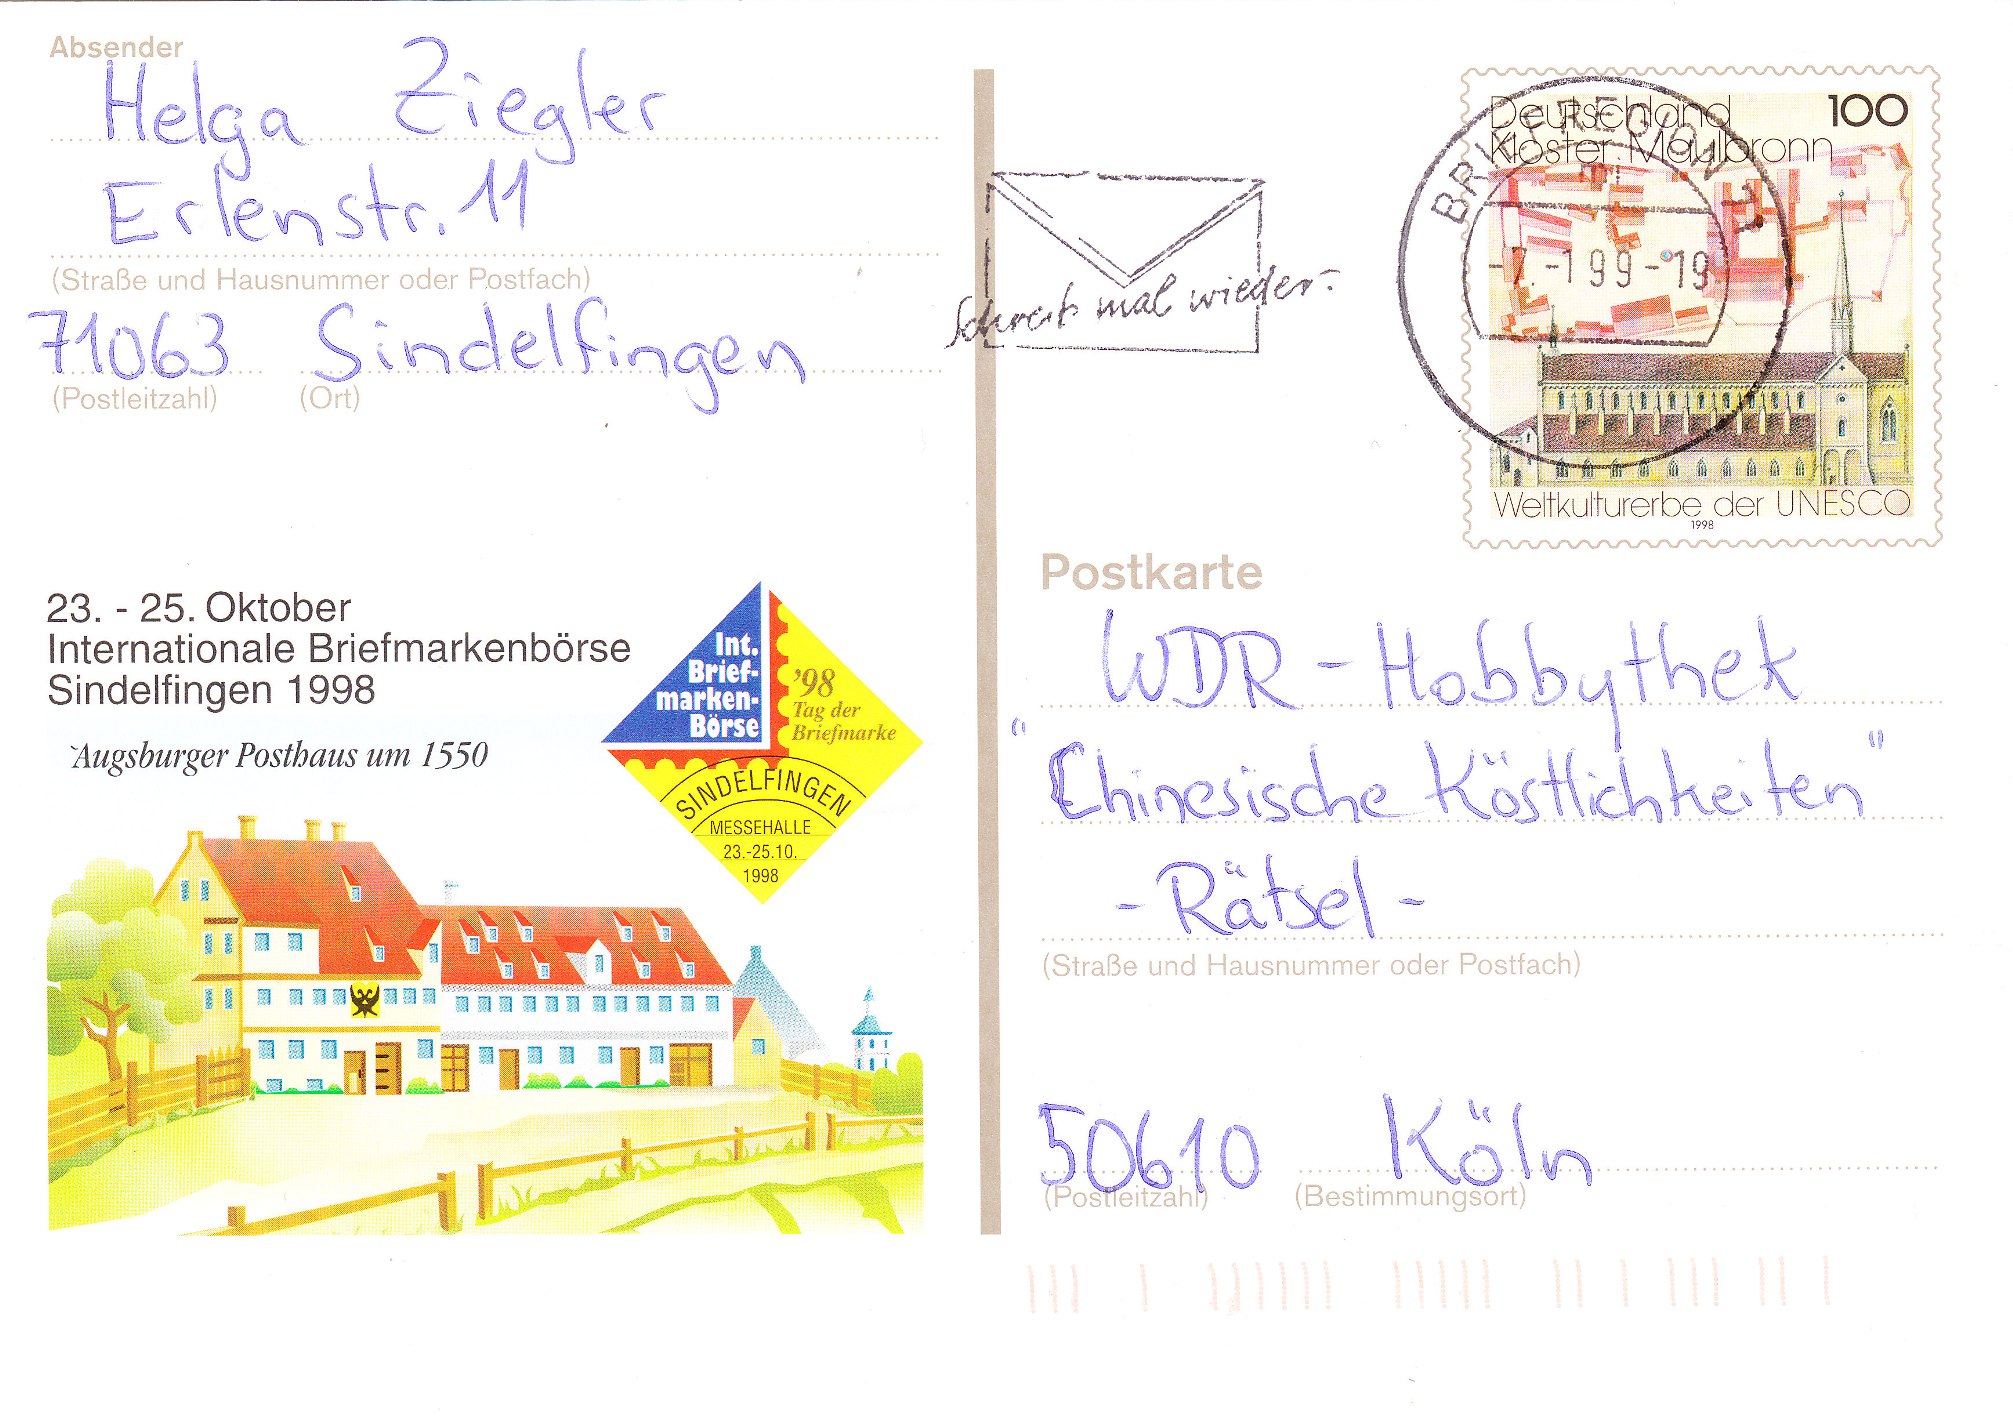 Absender
Helga Ziegler
Erlenstr. 11
(Straße und Hausnummer oder Postfach)
71063 Sindelfingen
(Postleitzahl) (Ort)
23. - 25. Oktober
Internationale Briefmarkenbörse
Sindelfingen 1998
Augsburger Posthaus um 1550
Int.
Brief-
marken-
Börse
'98
Tag der
Briefmarke
SINDELFINGEN
MESSEHALLE
23.-25.10.
1998
Schreib mal wieder.
BRIEFREGION 71
-7.-199-19
Deutschland 100
Kloster Maulbronn
Weltkulturerbe der UNESCO
1998
Postkarte
WDR - Hobbythek
"Chinesische Köstlichkeiten"
- Rätsel -
(Straße und Hausnummer oder Postfach)
50610 Köln
(Postleitzahl) (Bestimmungsort)